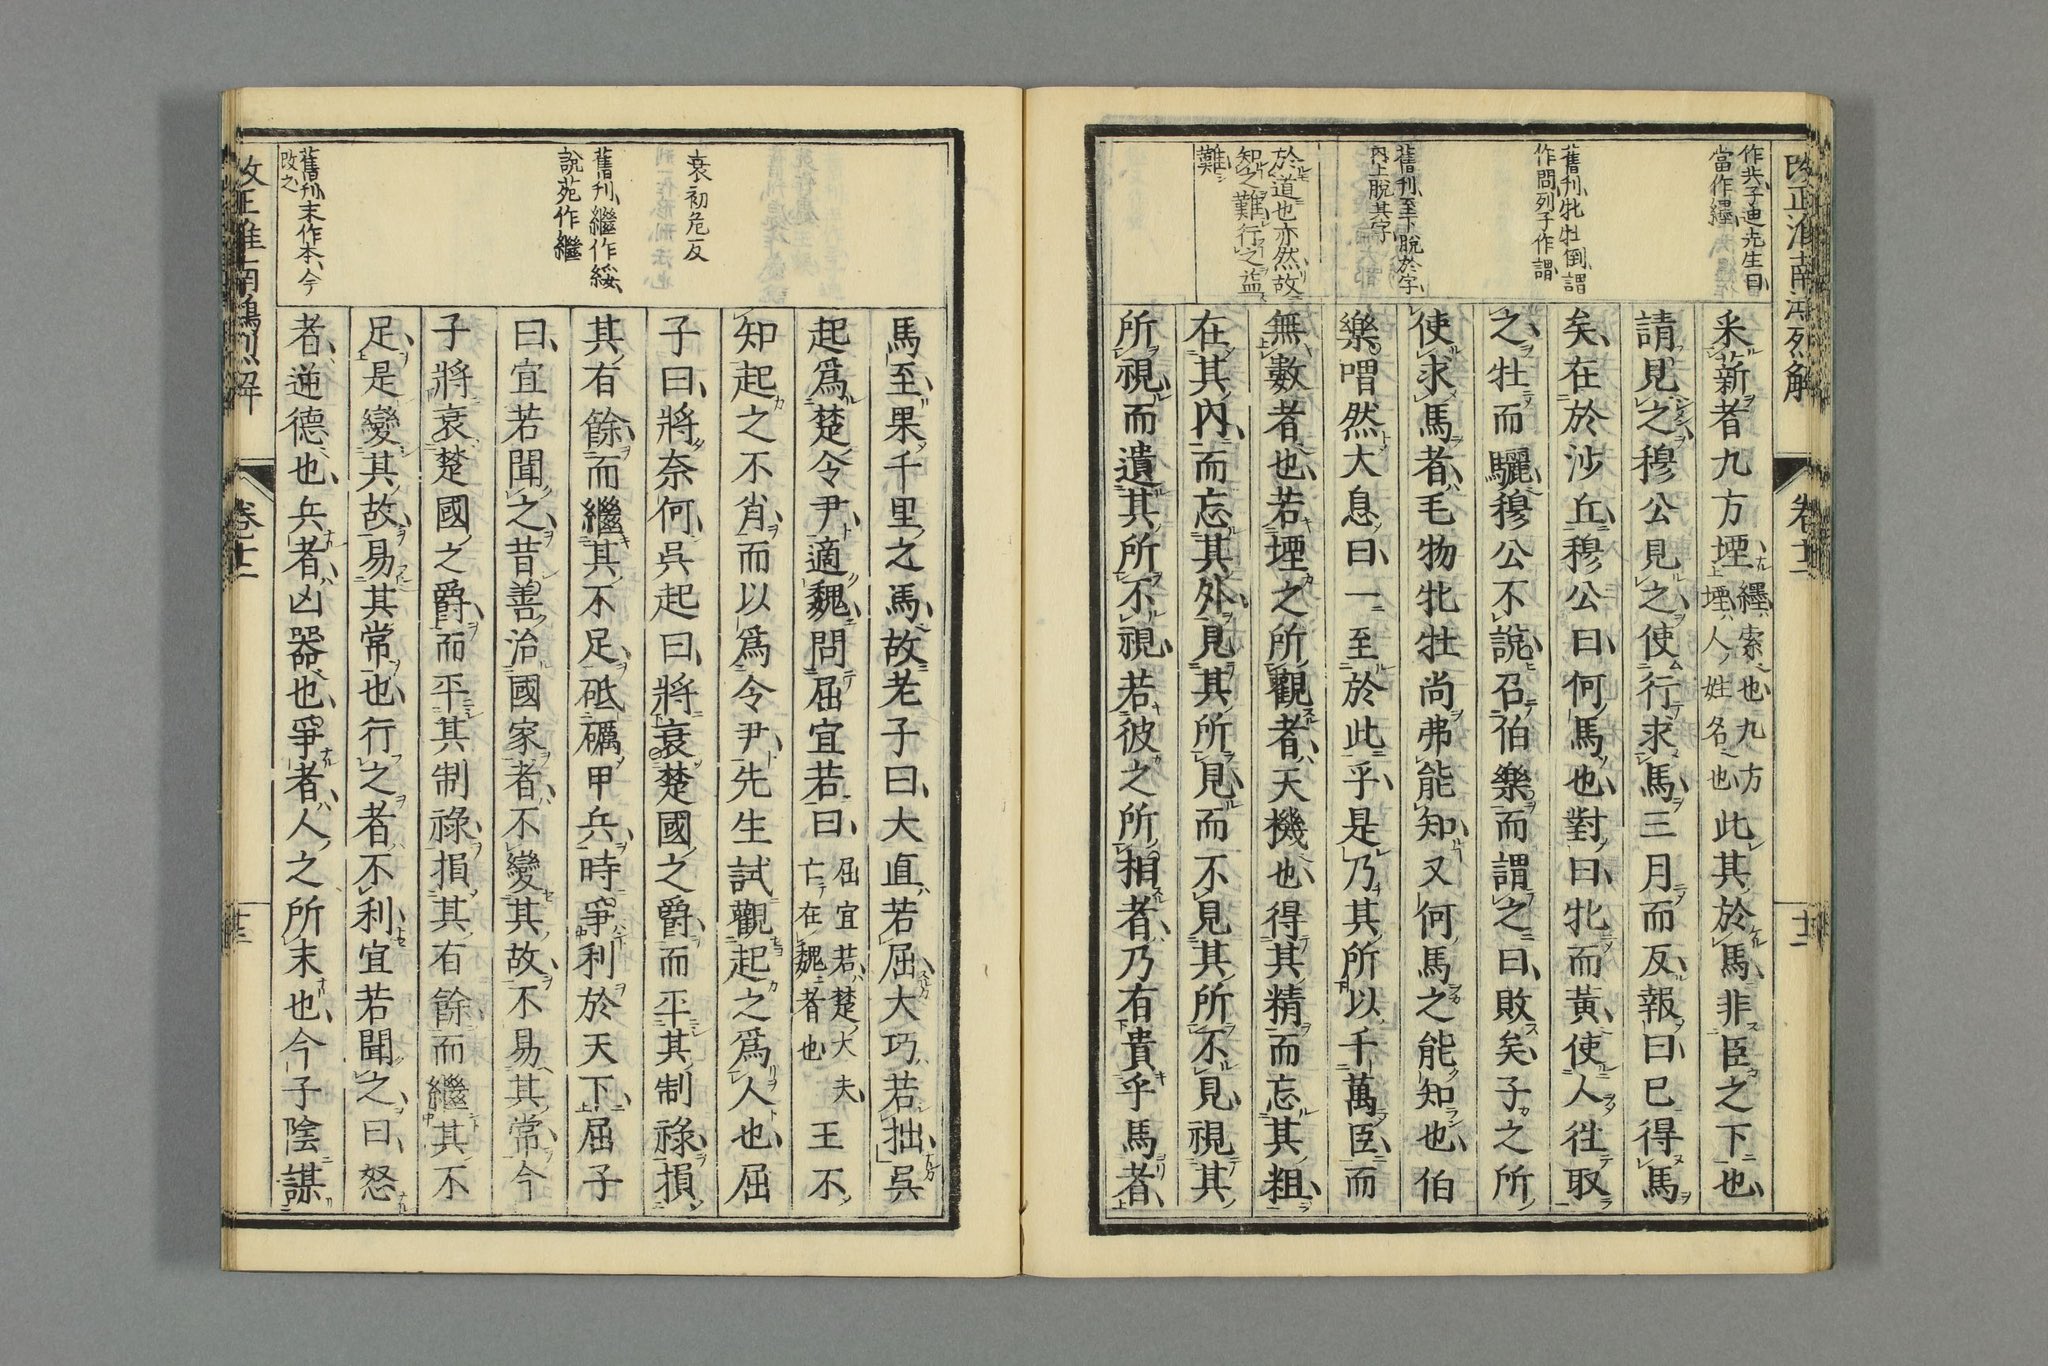 改正淮南鴻烈解
卷十二
十二
作共、子迪先生曰、
當作纆
舊刋、牝牡倒、謂
作問、列子作謂、
舊刋、至下脫於字、
内上脫其字
於道也亦然故
知之難行之益
難
釆薪者九方堙、纆索也九方堙人姓名也此其於馬、非臣之下也、
請見之穆公見之使行求馬、三月而反報曰、已得馬
矣、在於沙丘、穆公曰、何馬也、對曰、牝而黃、使人往取
之、牡而驪、穆公不說、召伯樂而謂之曰、敗矣、子之所
使求馬者、毛物牝牡尚弗能知、又何馬之能知也、伯
樂喟然大息曰、一至於此乎、是乃其所以千萬臣、而
無數者也、若堙之所觀者、天機也、得其精而忘其粗、
在其内、而忘其外、見其所見、而不見其所不見、視其
所視、而遺其所不視、若彼之所相者、乃有貴乎馬者、
馬至、果千里之馬、故老子曰、大直若屈、大巧若拙、吳
起爲楚令尹、適魏、問屈宜若曰、屈宜若楚大夫、亡在魏者也王不
知起之不肖、而以爲令尹、先生試觀起之爲人也、屈
子曰、將奈何、吳起曰、將衰楚國之爵、而平其制祿、損
其有餘、而繼其不足、砥礪甲兵、時爭利於天下、屈子
曰、宜若聞之、昔善治國家者、不變其故、不易其常、今
子將衰楚國之爵、而平其制祿、損其有餘、而繼其不
足、是變其故、易其常也、行之者、不利、宜若聞之、曰、怒
者、逆德也、兵者、凶器也、爭者、人之所末也、今子陰謀
衰初危反
舊刋、繼作綏、
說苑作繼
舊刋、末作本、今
改之
改正淮南鴻烈解
卷十二
十三